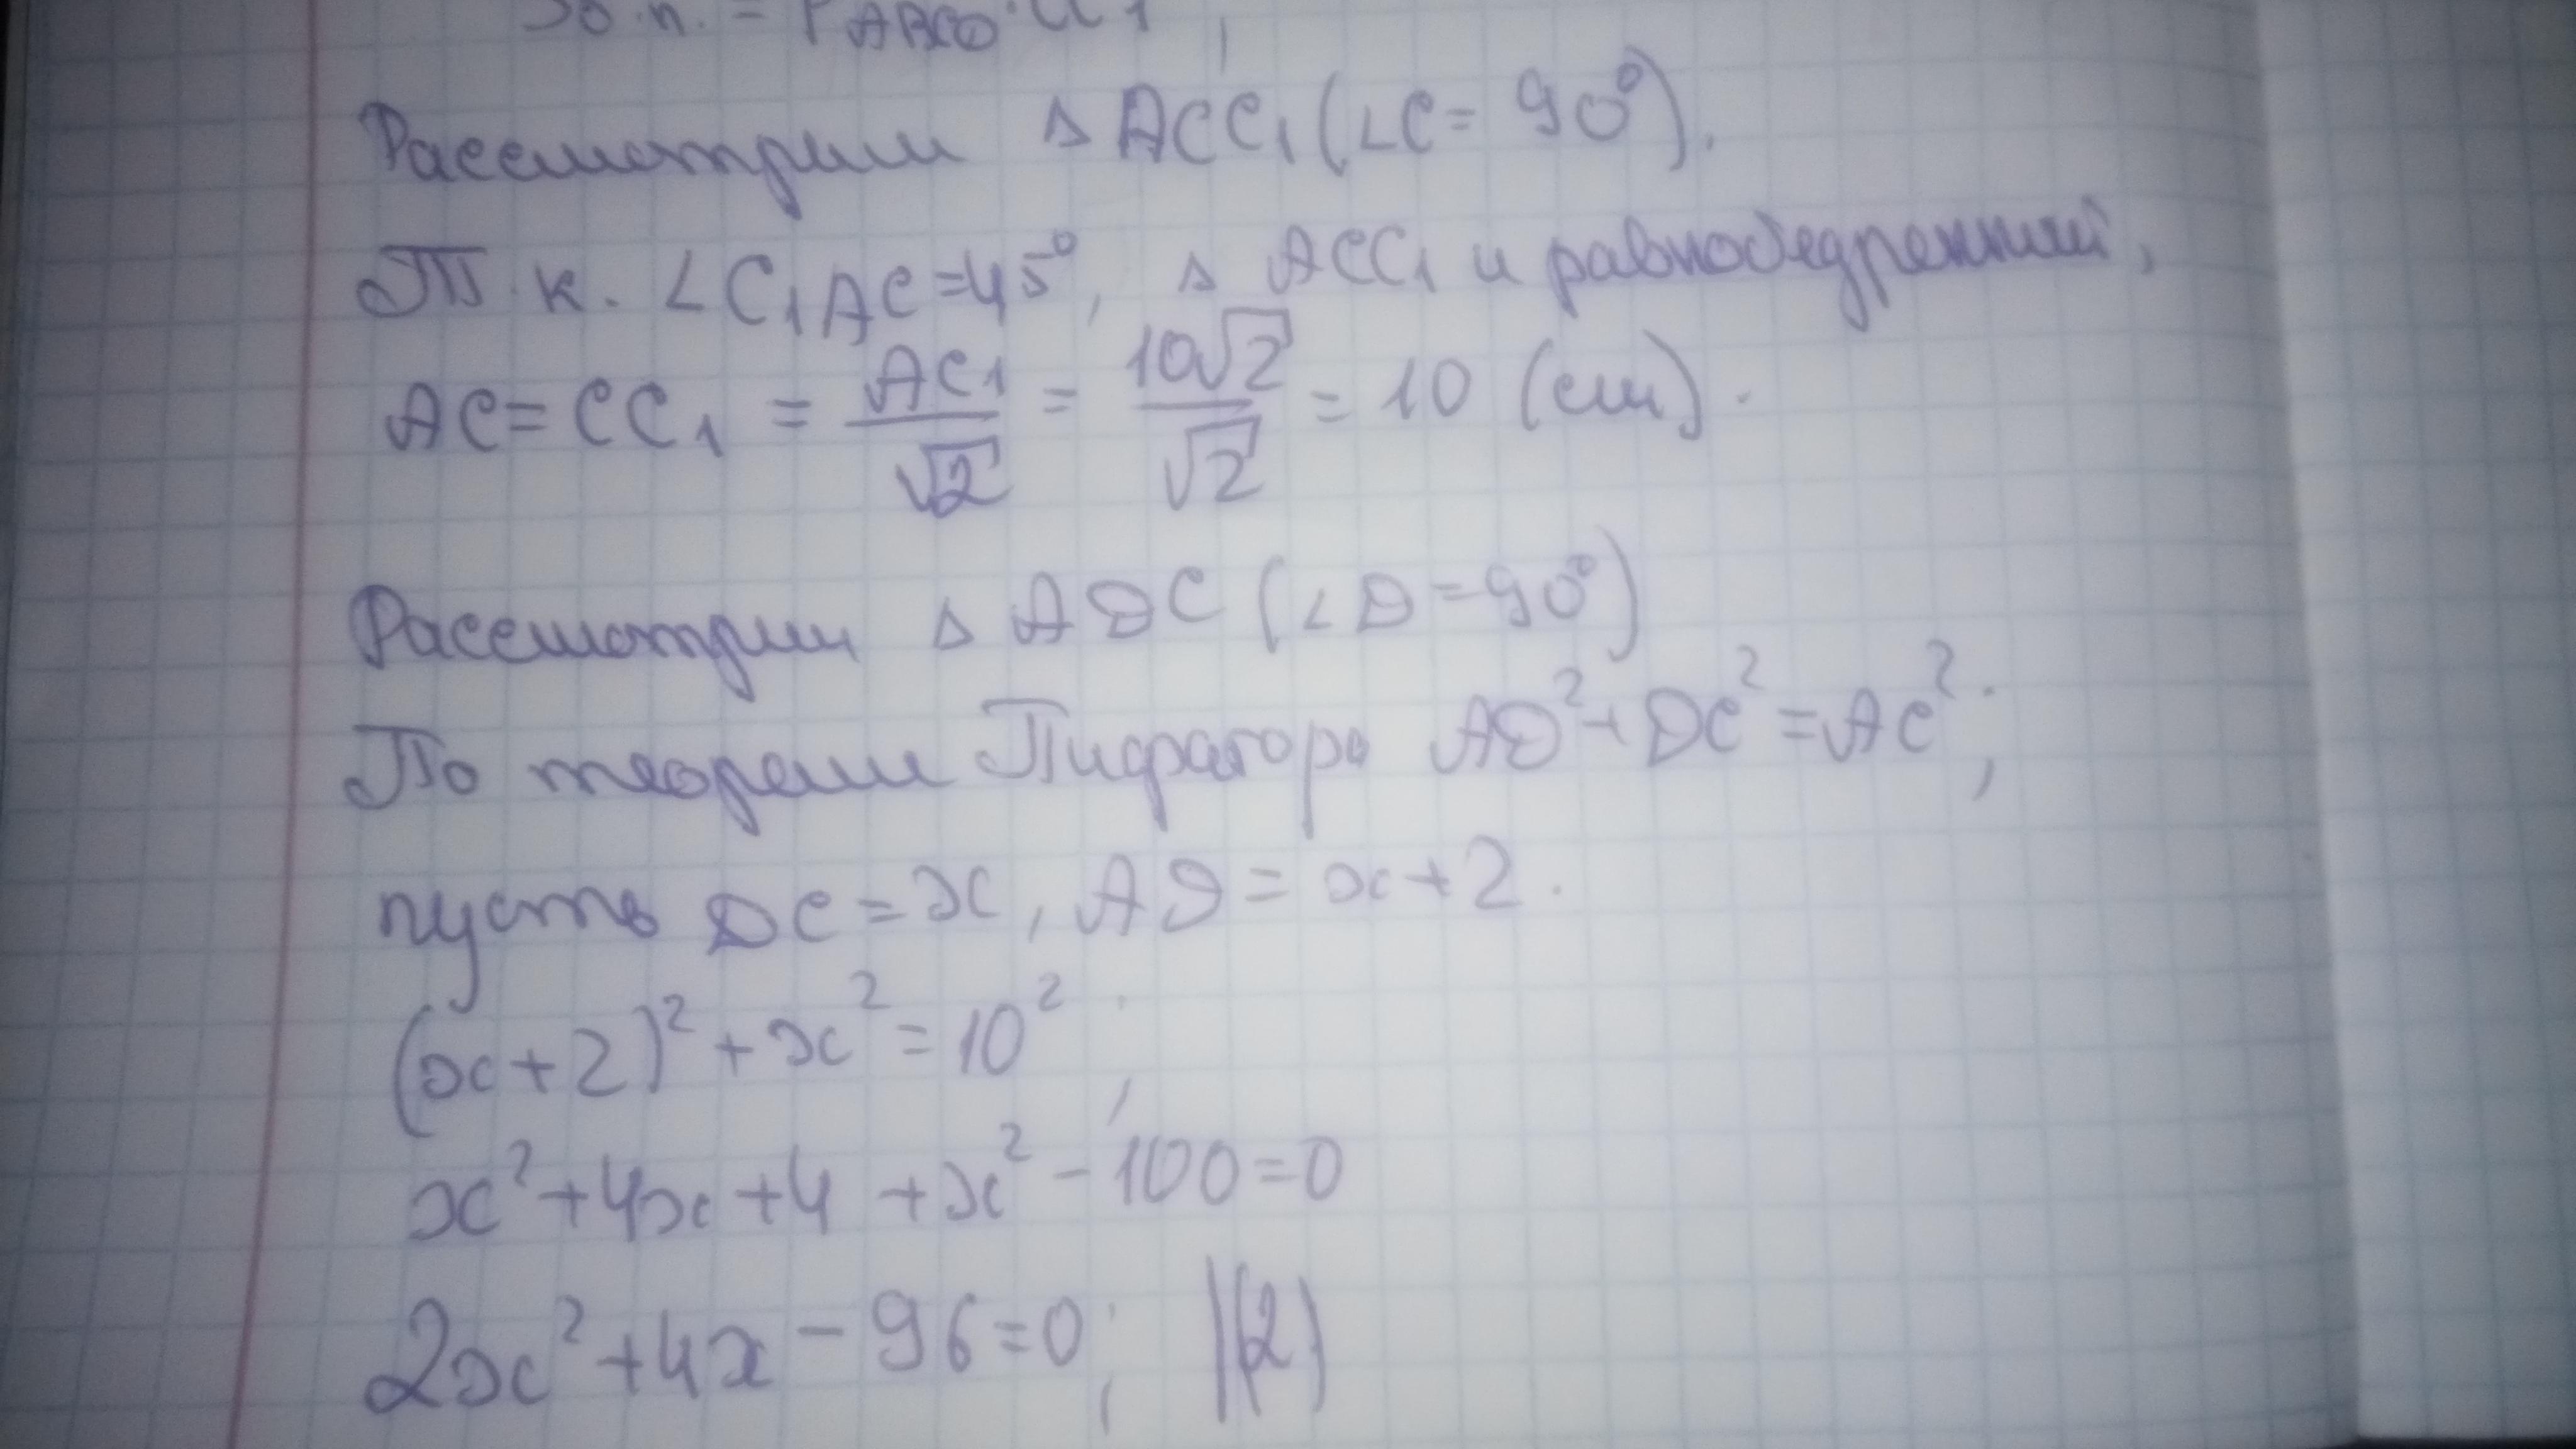 Sб.п. = PABCD · CC1;
Рассмотрим △ ACC₁ (∠C = 90°).
Т.к. ∠C₁AC = 45°, △ ACC₁ и равнобедренный,
AC = CC₁ = AC₁/√2 = 10√2/√2 = 10 (см).
Рассмотрим △ ADC (∠D = 90°)
По теореми Пифагора AD² + DC² = AC²;
пусть DC = x, AD = x + 2.
(x + 2)² + x² = 10²;
x² + 4x + 4 + x² - 100 = 0
2x² + 4x - 96 = 0; |(2)